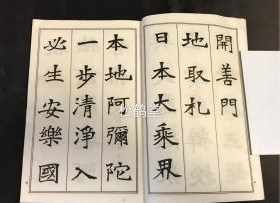 開善門
地取札
日本大乘界
本地阿彌陀
一步清淨入
必生安樂國